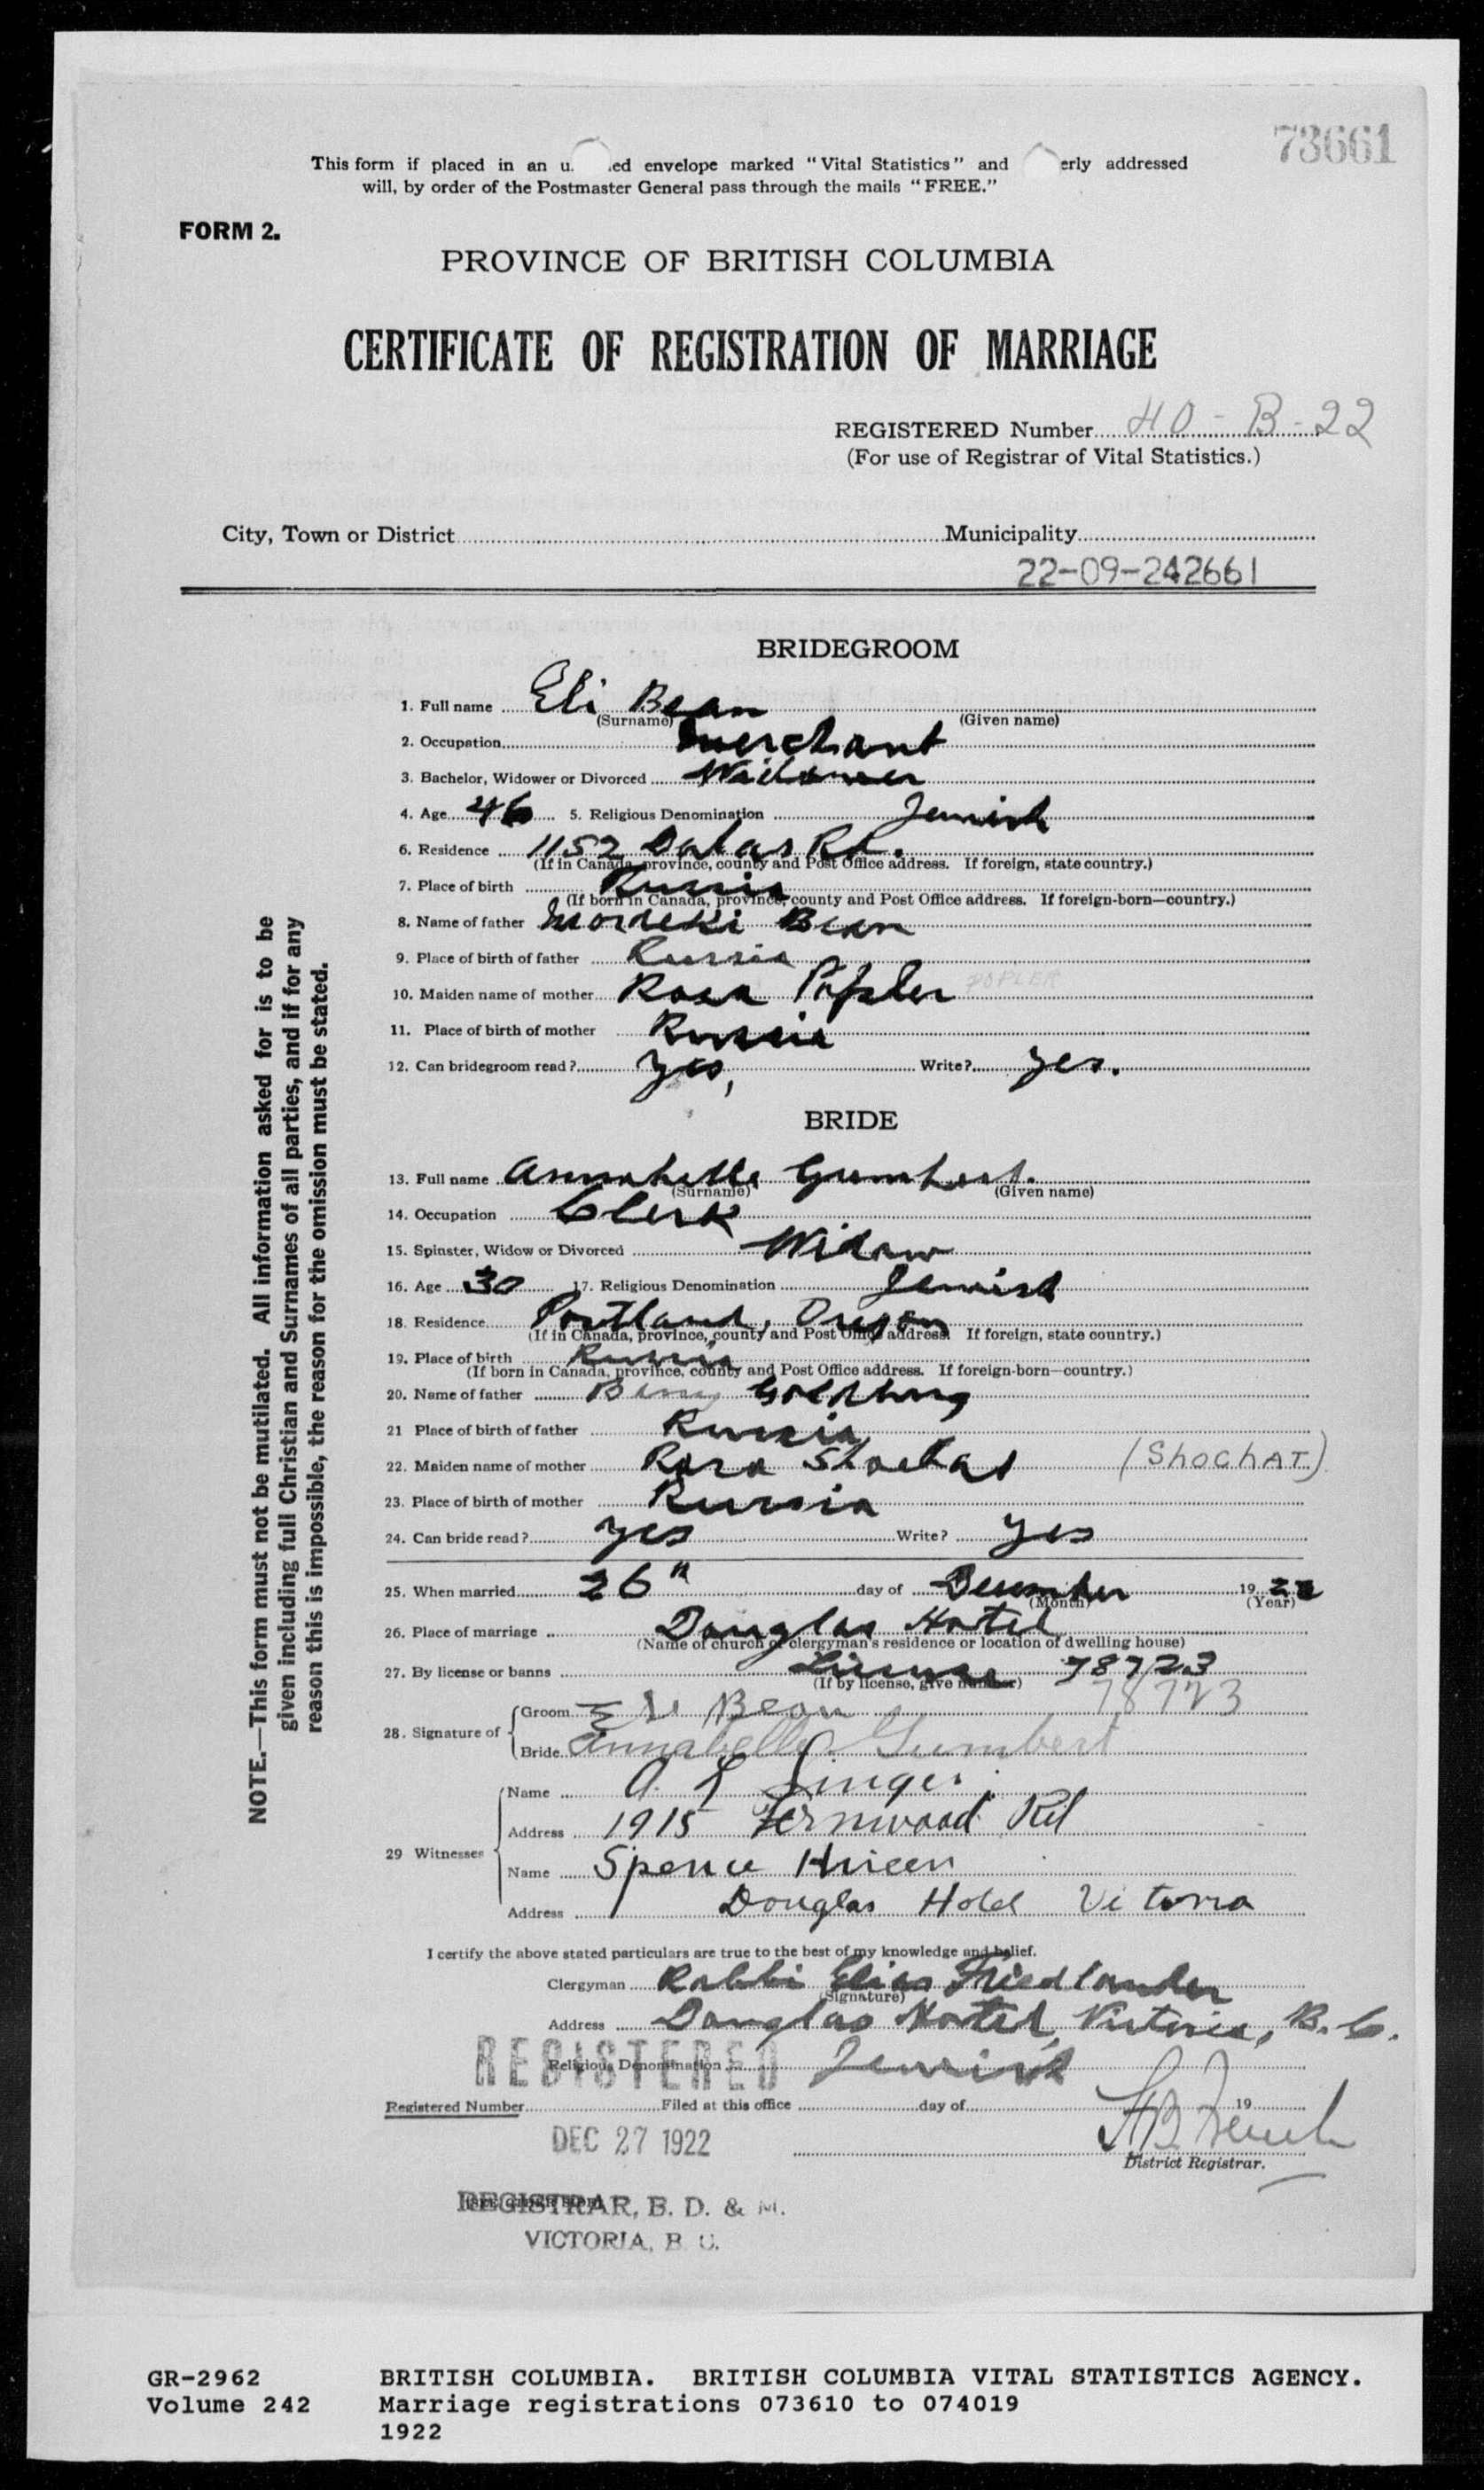 73661
This form if placed in an u. .ed envelope marked "Vital Statistics" and erly addressed
will, by order of the Postmaster General pass through the mails "FREE."
FORM 2.
PROVINCE OF BRITISH COLUMBIA
CERTIFICATE OF REGISTRATION OF MARRIAGE
REGISTERED Number 40-B-22
(For use of Registrar of Vital Statistics.)
City, Town or District Municipality
22-09-242661
BRIDEGROOM
1. Full name Eli Bean
(Surname) (Given name)
2. Occupation Merchant
3. Bachelor, Widower or Divorced Widower
4. Age 46 5. Religious Denomination Jewish
6. Residence 1152 Dalas Rd.
(If in Canada, province, county and Post Office address. If foreign, state country.)
7. Place of birth Russia
(If born in Canada, province, county and Post Office address. If foreign-born—country.)
8. Name of father Mordeki Bean
9. Place of birth of father Russia
10. Maiden name of mother Rosa Popler POPLER
11. Place of birth of mother Russia
12. Can bridegroom read? Yes, Write? Yes.
BRIDE
13. Full name Annabelle Gumbert.
(Surname) (Given name)
14. Occupation Clerk
15. Spinster, Widow or Divorced Widow
16. Age 30 17. Religious Denomination Jewish
18. Residence Portland, Oregon
(If in Canada, province, county and Post Office address. If foreign, state country.)
19. Place of birth Russia
(If born in Canada, province, county and Post Office address. If foreign-born—country.)
20. Name of father Goldberg
21 Place of birth of father Russia
22. Maiden name of mother Rosa Shochat (SHOCHAT)
23. Place of birth of mother Russia
24. Can bride read? Yes Write? Yes
25. When married 26th day of December 1922
(Month) (Year)
26. Place of marriage Douglas Hotel
(Name of church or clergyman's residence or location of dwelling house)
27. By license or banns License 78723
(If by license, give number) 78723
28. Signature of Groom Eli Bean
Bride Annabelle Gumbert
29 Witnesses Name A. L Singer
Address 1915 Fernwood Rd
Name Spence
Address Douglas Hotel Victoria
I certify the above stated particulars are true to the best of my knowledge and belief.
Clergyman Rabbi Elias Friedlander
(Signature)
Address Douglas Hotel, Victoria, B.C.
REGISTERED
Religious Denomination Jewish
Registered Number Filed at this office day of 19
DEC 27 1922
District Registrar.
REGISTRAR, B. D. & M.
VICTORIA, B. C.
NOTE.—This form must not be mutilated. All information asked for is to be
given including full Christian and Surnames of all parties, and if for any
reason this is impossible, the reason for the omission must be stated.
GR-2962 BRITISH COLUMBIA. BRITISH COLUMBIA VITAL STATISTICS AGENCY.
Volume 242 Marriage registrations 073610 to 074019
1922